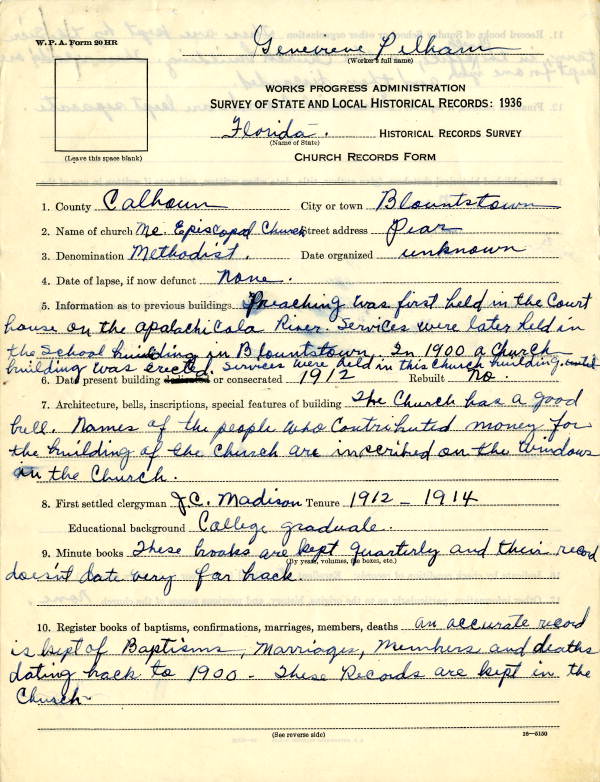 W. P. A. Form 20 HR
Genevieve Pelham
(Worker's full name)
WORKS PROGRESS ADMINISTRATION
SURVEY OF STATE AND LOCAL HISTORICAL RECORDS: 1936
Florida. HISTORICAL RECORDS SURVEY
(Name of State)
(Leave this space blank)
CHURCH RECORDS FORM
1. County Calhoun City or town Blountstown
2. Name of church Me. Episcopal Church Street address Pear
3. Denomination Methodist. Date organized unknown
4. Date of lapse, if now defunct None.
5. Information as to previous buildings Preaching was first held in the Court
house on the Apalachicola River. Services were later held in
the School building in Blountstown. In 1900 a Church
building was erected. Services were held in this church building until
6. Date present building dedicated or consecrated 1912 Rebuilt No.
7. Architecture, bells, inscriptions, special features of building The Church has a good
bell. Names of the people who contributed money for
the building of the Church are inscribed on the windows
in the Church.
8. First settled clergyman J.C. Madison Tenure 1912 - 1914
Educational background College graduate.
9. Minute books These books are kept quarterly and their record
(By years, volumes, file boxes, etc.)
doesn't date very far back.
10. Register books of baptisms, confirmations, marriages, members, deaths an accurate record
is kept of Baptisms, Marriages, Members and deaths
dating back to 1900 - These Records are kept in the
Church
(See reverse side)
16—5150